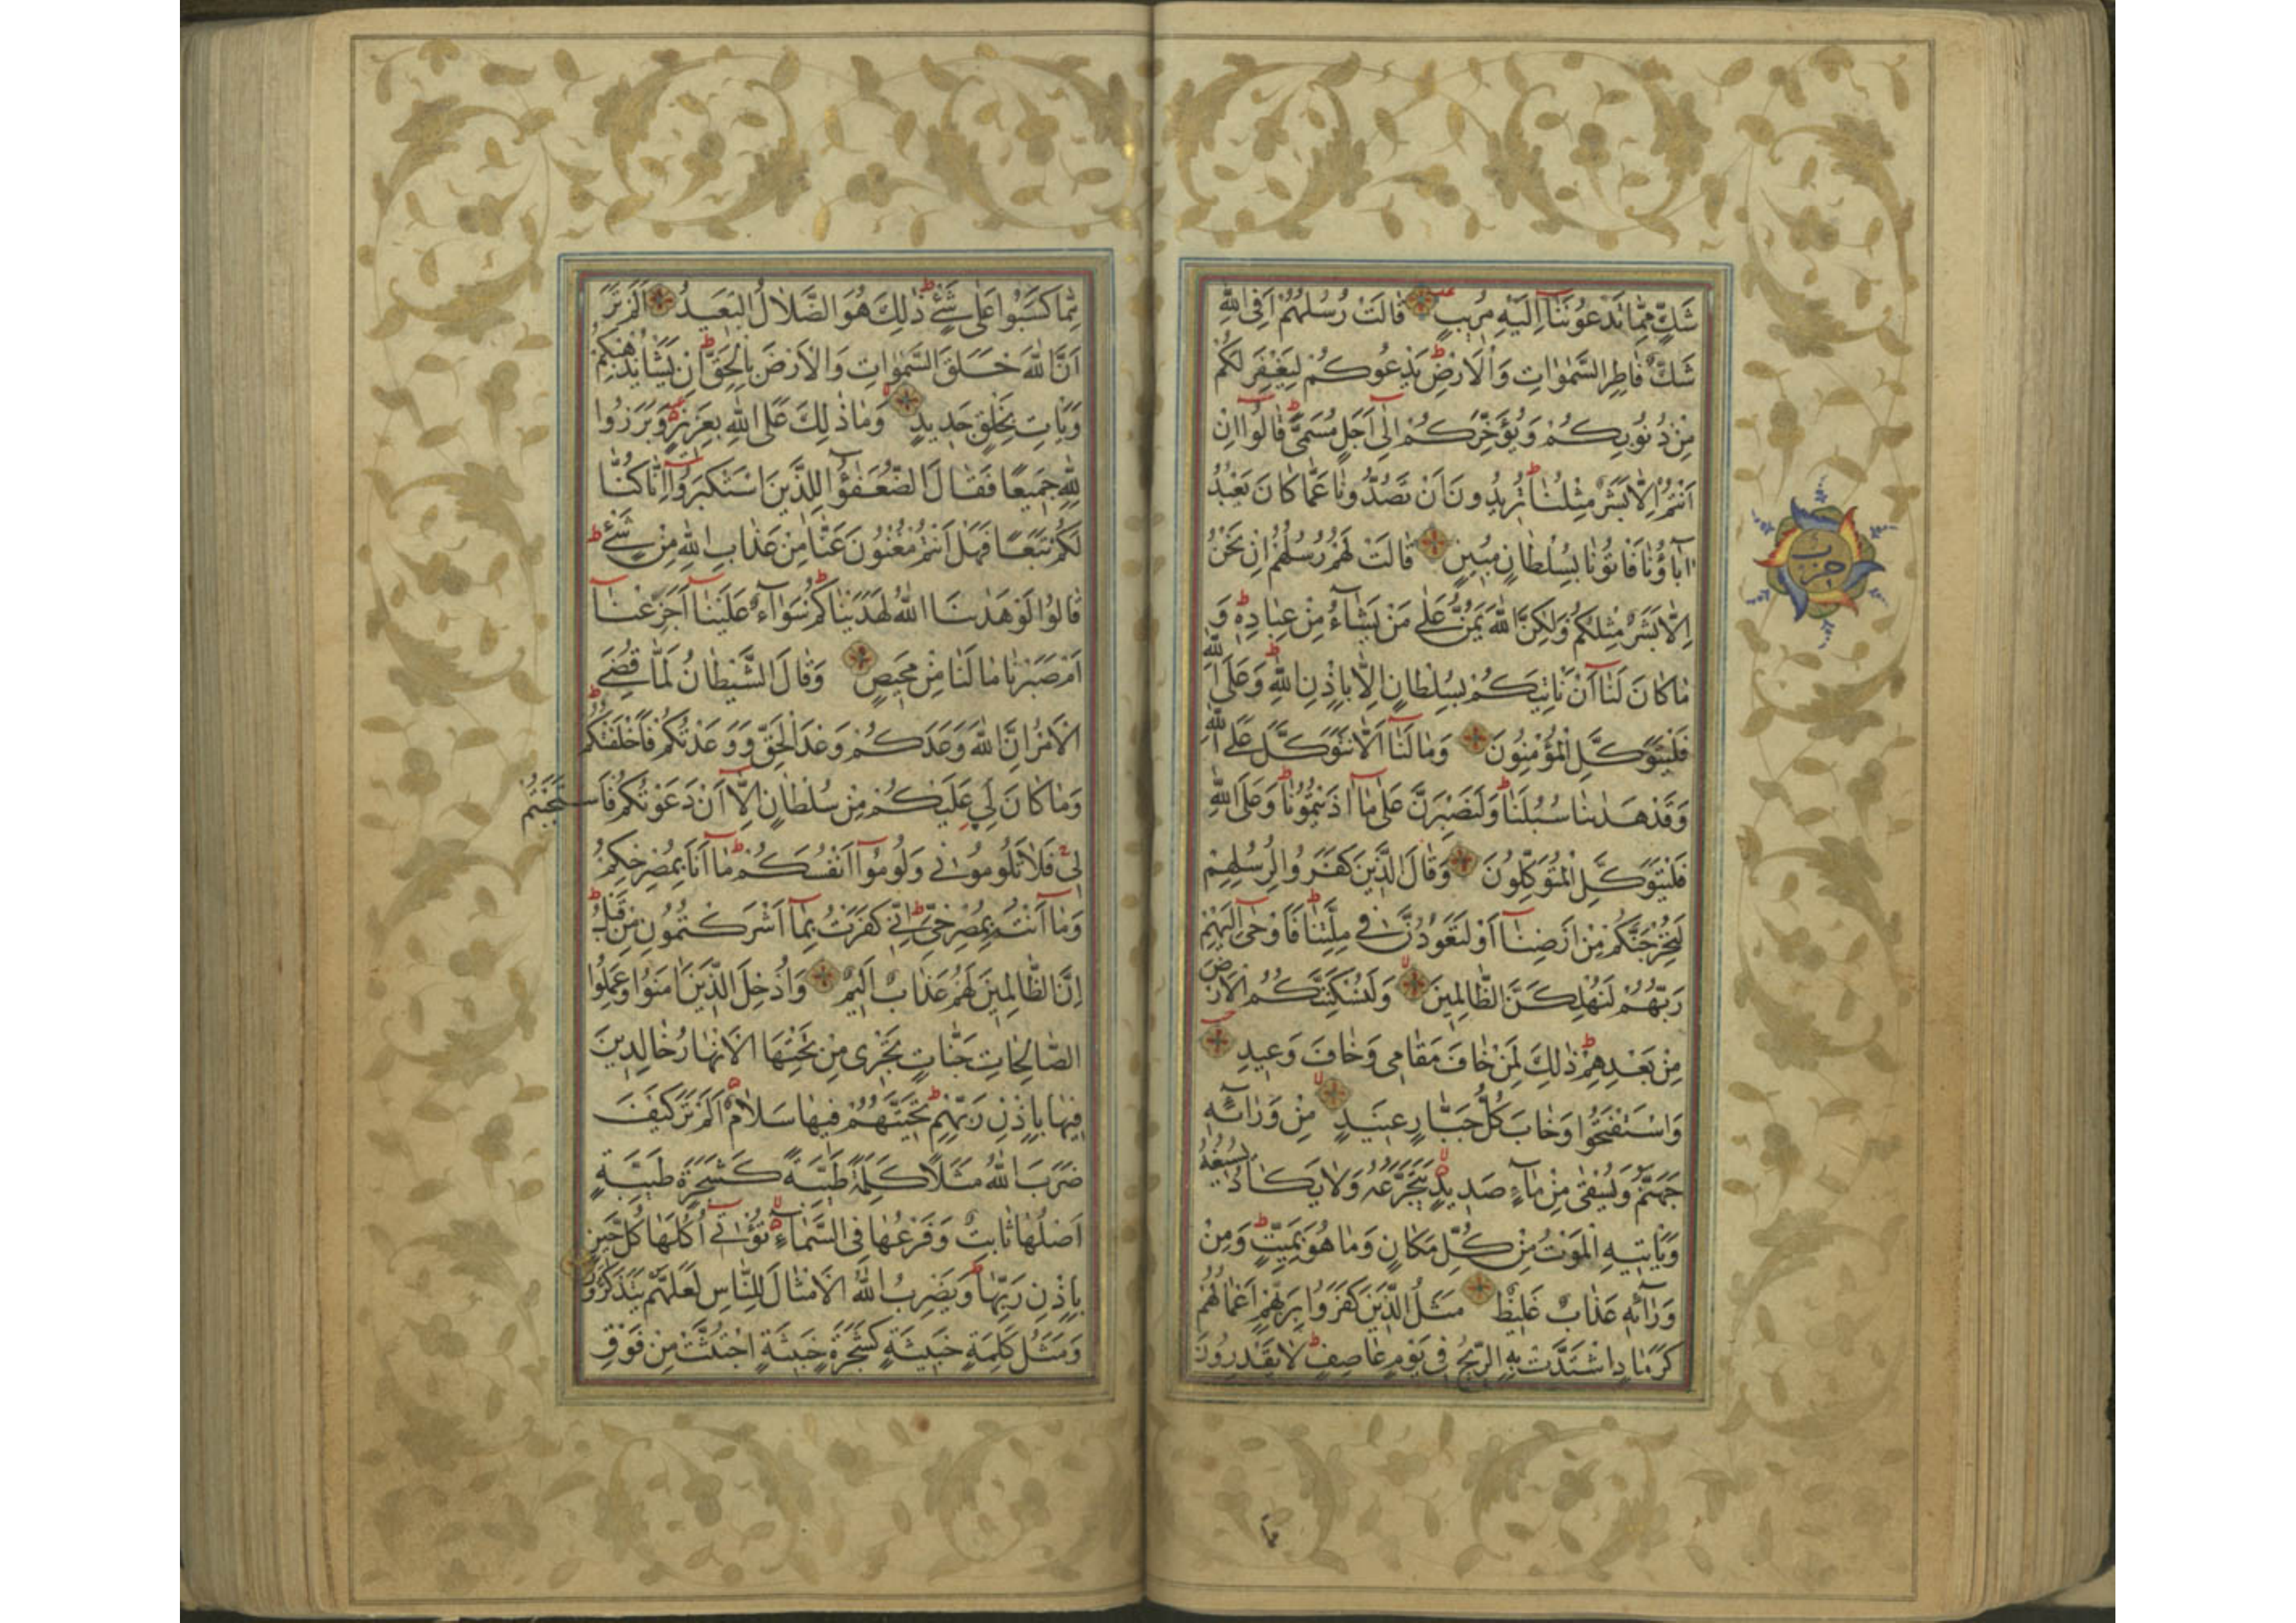 شَكٍّ مِمَّا تَدْعُونَنَا إِلَيْهِ مُرِيبٍ قَالَتْ رُسُلُهُمْ أَفِي اللَّهِ
شَكٌّ فَاطِرِ السَّمٰوَاتِ وَالْأَرْضِ يَدْعُوكُمْ لِيَغْفِرَ لَكُمْ
مِنْ ذُنُوبِكُمْ وَيُؤَخِّرَكُمْ إِلَى أَجَلٍ مُسَمًّى قَالُوا إِنْ
أَنْتُمْ إِلَّا بَشَرٌ مِثْلُنَا تُرِيدُونَ أَنْ تَصُدُّونَا عَمَّا كَانَ يَعْبُدُ
آبَاؤُنَا فَأْتُونَا بِسُلْطَانٍ مُبِينٍ قَالَتْ لَهُمْ رُسُلُهُمْ إِنْ نَحْنُ
إِلَّا بَشَرٌ مِثْلُكُمْ وَلٰكِنَّ اللَّهَ يَمُنُّ عَلَى مَنْ يَشَاءُ مِنْ عِبَادِهِ وَ
مَا كَانَ لَنَا أَنْ نَأْتِيَكُمْ بِسُلْطَانٍ إِلَّا بِإِذْنِ اللَّهِ وَعَلَى اللَّهِ
فَلْيَتَوَكَّلِ الْمُؤْمِنُونَ وَمَا لَنَا أَلَّا نَتَوَكَّلَ عَلَى اللَّهِ
وَقَدْ هَدٰينَا سُبُلَنَا وَلَنَصْبِرَنَّ عَلَى مَا آذَيْتُمُونَا وَعَلَى اللَّهِ
فَلْيَتَوَكَّلِ الْمُتَوَكِّلُونَ وَقَالَ الَّذِينَ كَفَرُوا لِرُسُلِهِمْ
لَنُخْرِجَنَّكُمْ مِنْ أَرْضِنَا أَوْ لَتَعُودُنَّ فِي مِلَّتِنَا فَأَوْحَى إِلَيْهِمْ
رَبُّهُمْ لَنُهْلِكَنَّ الظَّالِمِينَ وَلَنُسْكِنَنَّكُمُ الْأَرْضَ
مِنْ بَعْدِهِمْ ذٰلِكَ لِمَنْ خَافَ مَقَامِي وَخَافَ وَعِيدِ
وَاسْتَفْتَحُوا وَخَابَ كُلُّ جَبَّارٍ عَنِيدٍ مِنْ وَرَائِهِ
جَهَنَّمُ وَيُسْقَى مِنْ مَاءٍ صَدِيدٍ يَتَجَرَّعُهُ وَلَا يَكَادُ يُسِيغُهُ
وَيَأْتِيهِ الْمَوْتُ مِنْ كُلِّ مَكَانٍ وَمَا هُوَ بِمَيِّتٍ وَمِنْ
وَرَائِهِ عَذَابٌ غَلِيظٌ مَثَلُ الَّذِينَ كَفَرُوا بِرَبِّهِمْ أَعْمَالُهُمْ
كَرَمَادٍ اشْتَدَّتْ بِهِ الرِّيحُ فِي يَوْمٍ عَاصِفٍ لَا يَقْدِرُونَ
حزب
مِمَّا كَسَبُوا عَلَى شَيْءٍ ذٰلِكَ هُوَ الضَّلَالُ الْبَعِيدُ أَلَمْ تَرَ
أَنَّ اللَّهَ خَلَقَ السَّمٰوَاتِ وَالْأَرْضَ بِالْحَقِّ إِنْ يَشَأْ يُذْهِبْكُمْ
وَيَأْتِ بِخَلْقٍ جَدِيدٍ وَمَا ذٰلِكَ عَلَى اللَّهِ بِعَزِيزٍ وَبَرَزُوا
لِلَّهِ جَمِيعًا فَقَالَ الضُّعَفٰؤُا لِلَّذِينَ اسْتَكْبَرُوا إِنَّا كُنَّا
لَكُمْ تَبَعًا فَهَلْ أَنْتُمْ مُغْنُونَ عَنَّا مِنْ عَذَابِ اللَّهِ مِنْ شَيْءٍ
قَالُوا لَوْ هَدٰنَا اللَّهُ لَهَدَيْنَاكُمْ سَوَاءٌ عَلَيْنَا أَجَزِعْنَا
أَمْ صَبَرْنَا مَا لَنَا مِنْ مَحِيصٍ وَقَالَ الشَّيْطَانُ لَمَّا قُضِيَ
الْأَمْرُ إِنَّ اللَّهَ وَعَدَكُمْ وَعْدَ الْحَقِّ وَوَعَدْتُكُمْ فَأَخْلَفْتُكُمْ
وَمَا كَانَ لِيَ عَلَيْكُمْ مِنْ سُلْطَانٍ إِلَّا أَنْ دَعَوْتُكُمْ فَاسْتَجَبْتُمْ
لِي فَلَا تَلُومُونِي وَلُومُوا أَنْفُسَكُمْ مَا أَنَا بِمُصْرِخِكُمْ
وَمَا أَنْتُمْ بِمُصْرِخِيَّ إِنِّي كَفَرْتُ بِمَا أَشْرَكْتُمُونِ مِنْ قَبْلُ
إِنَّ الظَّالِمِينَ لَهُمْ عَذَابٌ أَلِيمٌ وَأُدْخِلَ الَّذِينَ آمَنُوا وَعَمِلُوا
الصَّالِحَاتِ جَنَّاتٍ تَجْرِي مِنْ تَحْتِهَا الْأَنْهَارُ خَالِدِينَ
فِيهَا بِإِذْنِ رَبِّهِمْ تَحِيَّتُهُمْ فِيهَا سَلَامٌ أَلَمْ تَرَ كَيْفَ
ضَرَبَ اللَّهُ مَثَلًا كَلِمَةً طَيِّبَةً كَشَجَرَةٍ طَيِّبَةٍ
أَصْلُهَا ثَابِتٌ وَفَرْعُهَا فِي السَّمَاءِ تُؤْتِي أُكُلَهَا كُلَّ حِينٍ
بِإِذْنِ رَبِّهَا وَيَضْرِبُ اللَّهُ الْأَمْثَالَ لِلنَّاسِ لَعَلَّهُمْ يَتَذَكَّرُونَ
وَمَثَلُ كَلِمَةٍ خَبِيثَةٍ كَشَجَرَةٍ خَبِيثَةٍ اجْتُثَّتْ مِنْ فَوْقِ